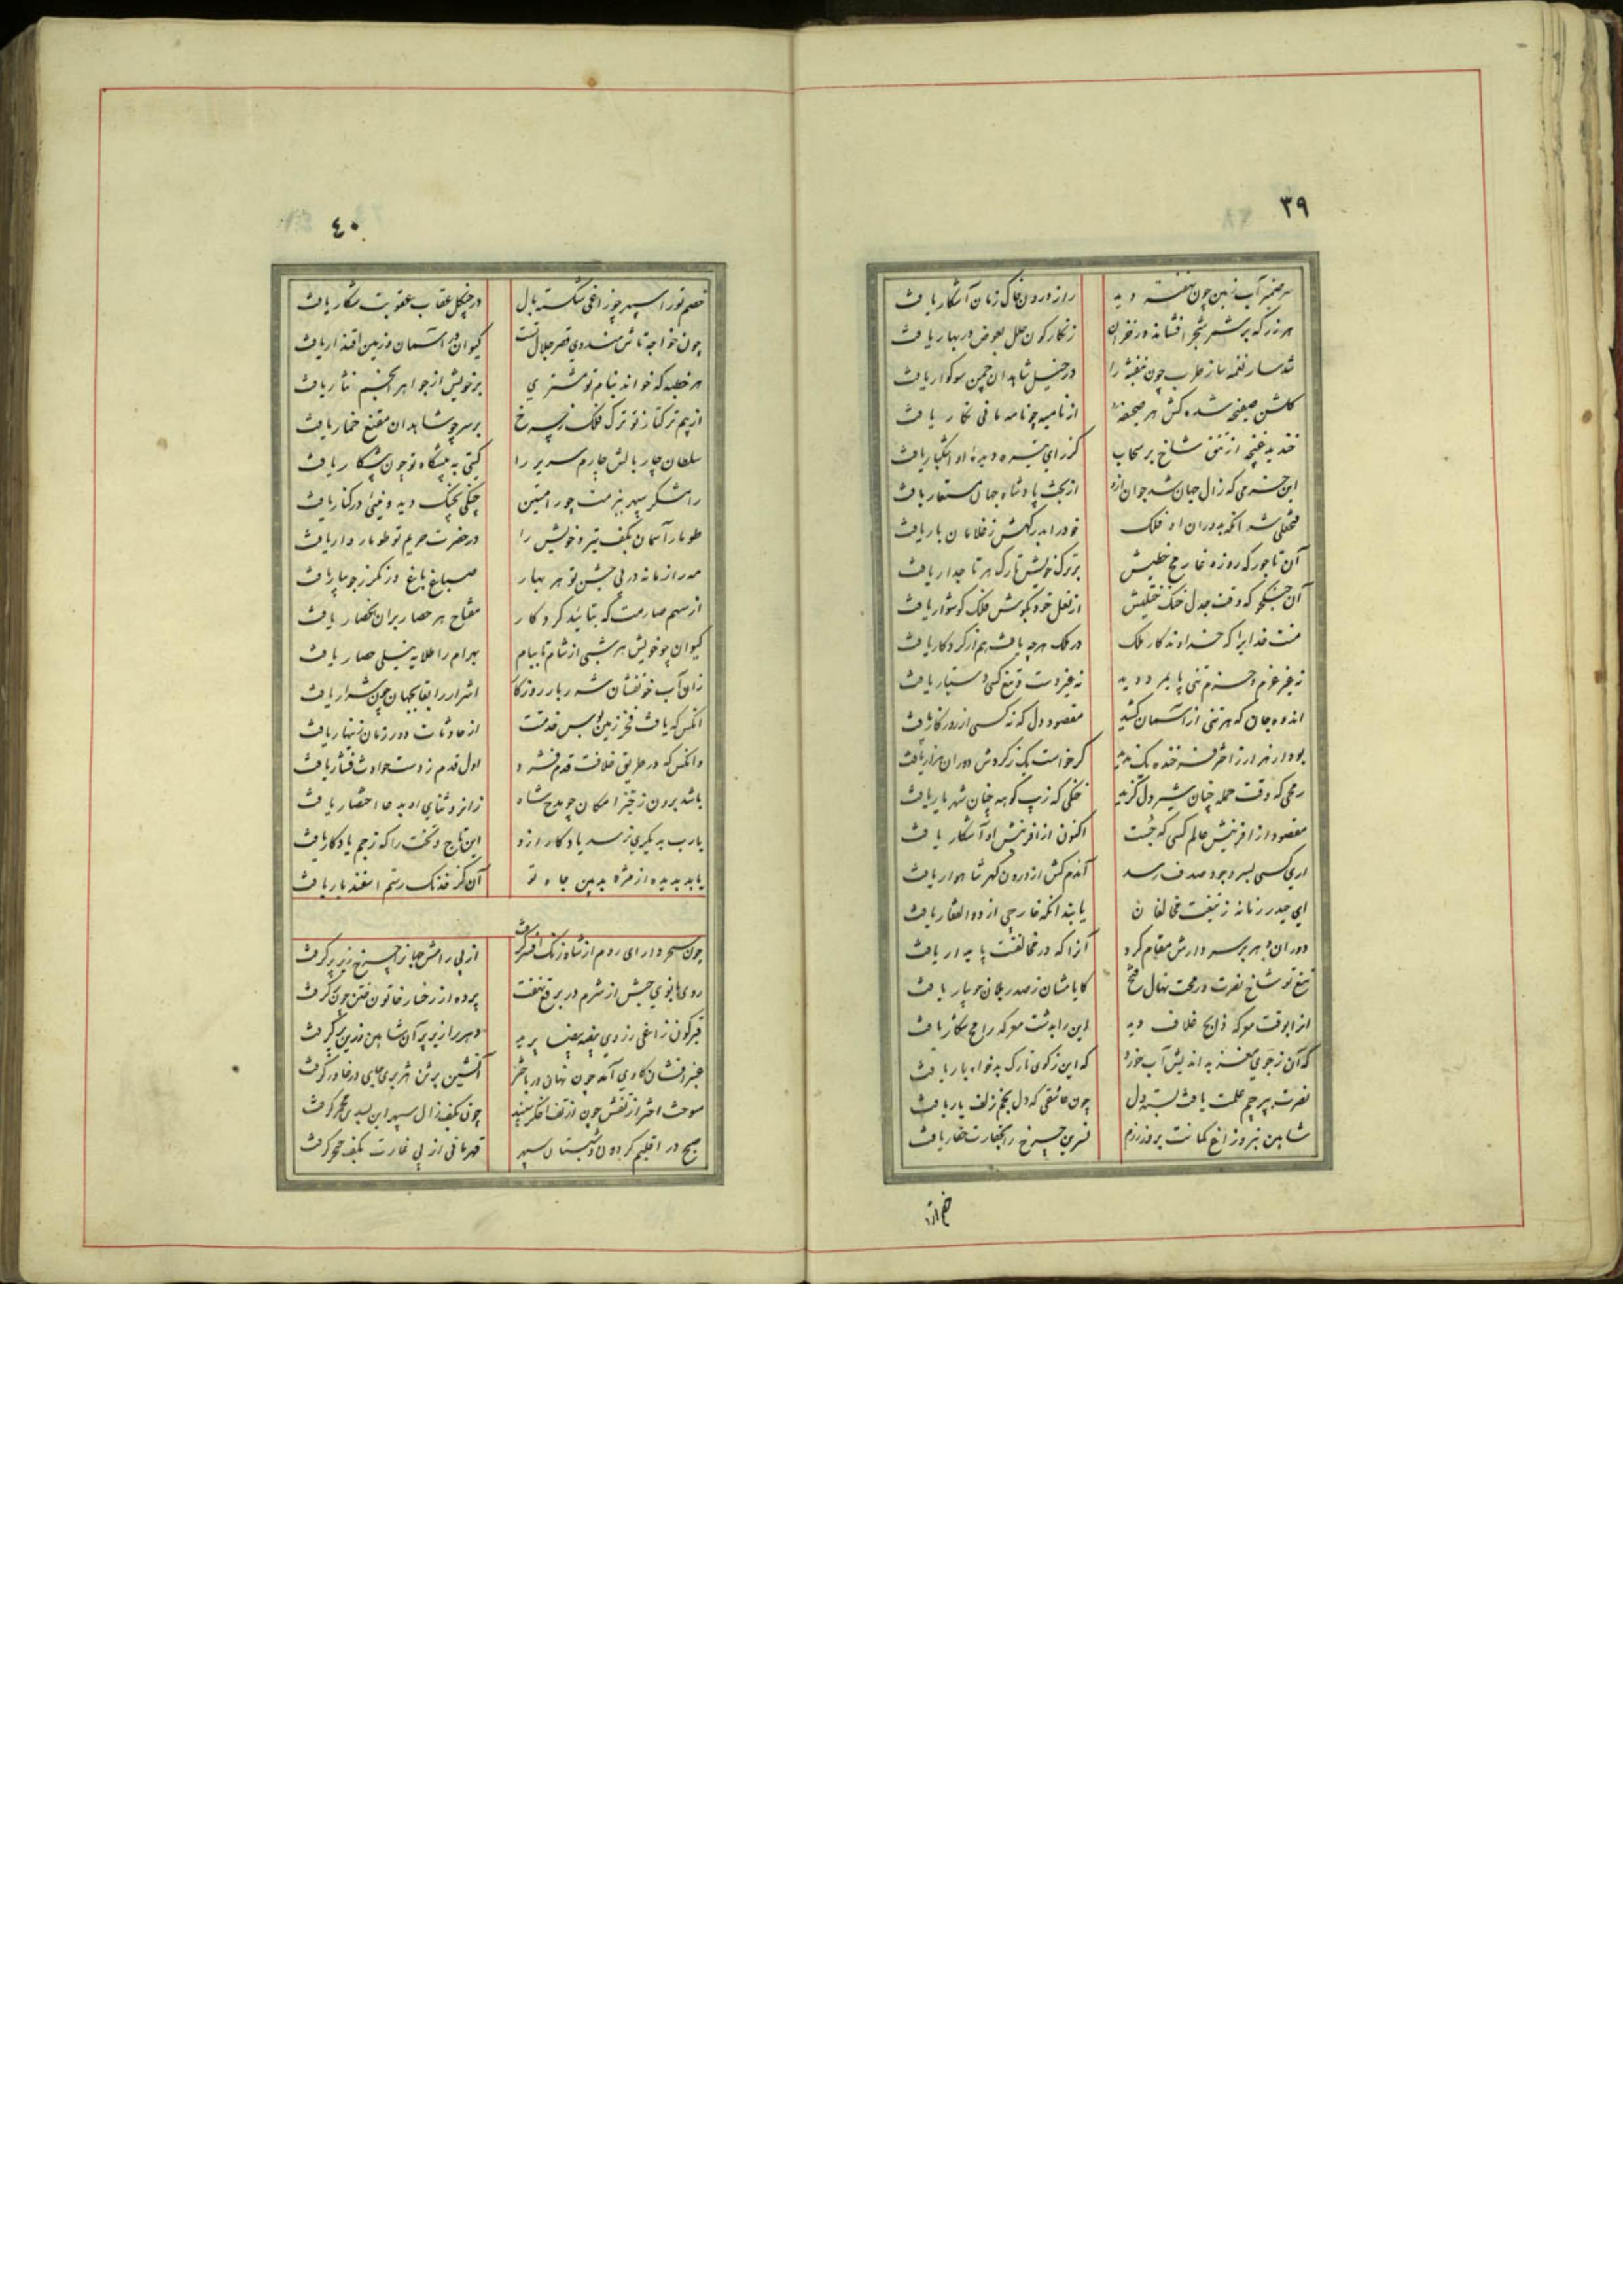 ۳۹
سر ضمیر آب زمین چون نهفته دید راز درون خاک زمان آشکار یافت
هر زر که بر شمر شجر افشاند در خزان زنگارگون حلل بعوض در بهار یافت
شد سار نغمه ساز طرب چون بنفشه را در خیل شاهدان چمن سوکوار یافت
کلشن صحیفه شده کش هر صحیفه از نامیه چو نامه مانی نکار یافت
خندید غنچه از شاخ بر سحاب کز رای تیره دیده او اشکبار یافت
این خرمی که زال جهان شد جوان ازو از بخت پادشاه جهان مستعار یافت
فتحعلی شه آنکه بدوران او فلک خود را بدرکهش ز غلامان بار یافت
آن تاجور که روزه رمح خطیش بر ترک خویش تارک هر تاجدار یافت
آن جنکجو که وقت جدل خنک ختلیش از نعل خود بکوش فلک کوشوار یافت
منت خدایرا که خداوندکار ملک در ملک هرچه یافت هم از کردکار یافت
نه غیر عزم و حزم تنی پایمرد دید نه غیر دست و تیغ کسی دستیار یافت
اندوه جان که هر تنی از آسمان کشید مقصود دل که نه کسی از روزکار یافت
کر خواست یک ز کردش دوران هزار یافت
رمحی که وقت حمله چنان شیردل کزید خنکی که زیب کوهه چنان شهریار یافت
مقصود از افرینش عالم کسی که جست اکنون از افرینش او آشکار یافت
اری کسی بسر وجود صدف رسد آندم کش از درون کهر شاهوار یافت
ای حیدر زمانه ز تیغت مخالفان یابند آنکه خارجی از ذوالفقار یافت
دوران بهر بر سر دارش مقام کرد آنرا که در مخالفتت پایدار یافت
تیغ تو شاخ نصرت و رمحت نهال فتح کایامشان ز صدر یلان جویبار یافت
انرا بوقت معرکه ذابح خلاف دید این را بدشت معرکه رامح شکار یافت
که آن ز جوی مغز بداندیش آب خورد که این ز کوی تارک بدخواه بار یافت
نصرت بپرچم علمت یافت بسته دل چون عاشقی که دل بخم زلف یار یافت
شاهین بنروز اغ کمانت بروز رزم نسرین چرخ را بحقارت حقار یافت
خصم ترا
۴۰
خصم تورا سپهر چو زاغی شکسته بال در چنکل عقاب عقوبت شکار یافت
چون خواجه تاش هندوی قصر جلال تست کیوان در آسمان و زمین اقتدار یافت
هر خطبه که خواند بنام تو مشتری بر خویش از جواهر انجم نثار یافت
از بیم ترکتاز تو ترک فلک برخ بر سر چو شاهدان مقنع خمار یافت
سلطان چاربالش چارم سریر را کیتی به پیشکاه تو چون پیشکار یافت
رامشکر سپهر ببزمت چو رامتین چنکی بچنک دید و نیی در کنار یافت
طومار آسمان بکف تیر و خویش را در حضرت حریم تو طوماردار یافت
مه را زمانه در پی جشن تو هر بهار صباغ باغ و زمکر جویبار یافت
از سهم صارمت که بتائید کردکار مفتاح هر حصار بران انحصار یافت
کیوان چو خویش هر شبی از شام تا ببام بهرام را طلایه نیلی حصار یافت
زان آب خونفشان شه ربار روزکار اشرار را بقا بجهان چون شرار یافت
آنکس که یافت فخر زمین بوس خدمتت از حادثات دور زمان زینهار یافت
وانکس که در طریق خلافت قدم فشرد اول قدم ز دست حوادث فشار یافت
باشد برون ز حیز امکان چو مدح شاه زانرو ثنای او بدعا اختصار یافت
یارب به دیکری نرسد یادکار ازو این تاج و تخت را که ز جم یادکار یافت
یابد بدیده از مژه بدبین جاه تو آن کز خدنک رستم اسفندیار یافت
چون سحر دارای روم از شاه زنک افسر کرفت از پی رامش جهانرا چرخ زیر پر کرفت
روی بانوی حبش از شرم در برقع نهفت پرده از رخسار خاتون ختن چون بر کرفت
قیرکون زاغی ز روی بیضه بیضا پرید دهر را زیر پر آن شاهین زرین پر کرفت
عنبرافشان کاوی آمد چون نهان در باختر آتشین برتن هزبری جای در خاور کرفت
سوخت اختر از تفش چون از تف اخکر سپند چون بکف زال سپهر این بسدی مجمر کرفت
صبح در اقلیم کردون و شبستان سپهر قهرمانی از پی غارت بکف خنجر کرفت